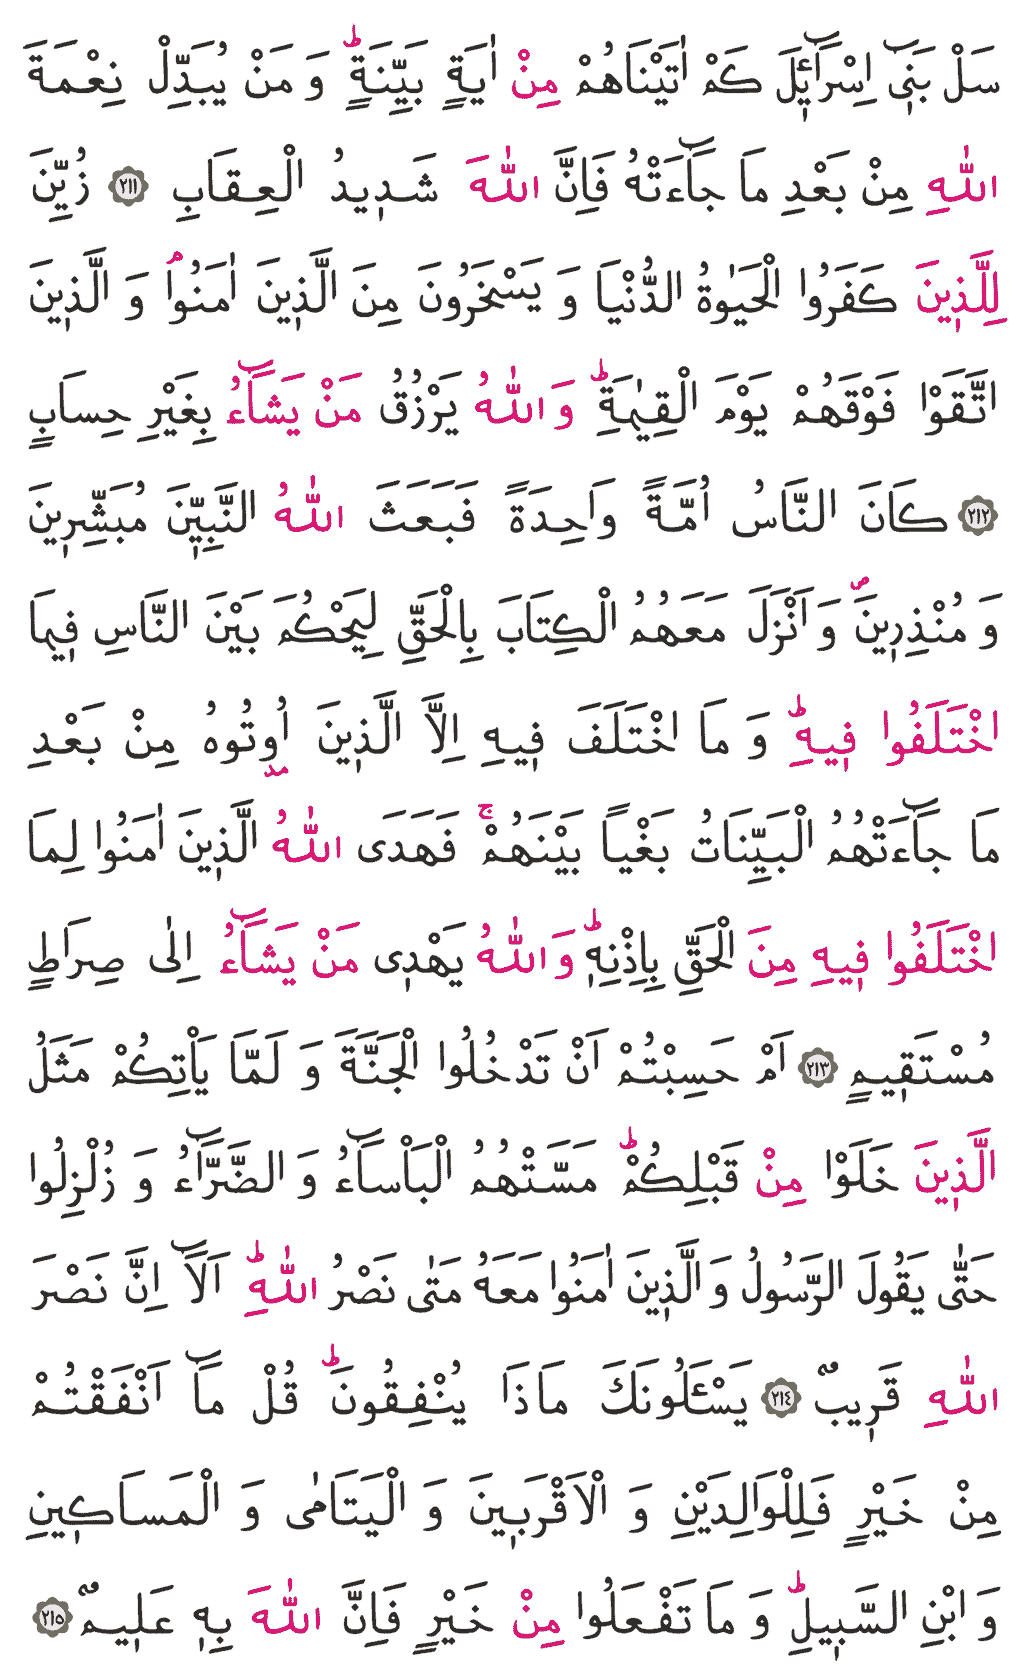 سَلْ بَنٖٓي اِسْرَٓائٖلَ كَمْ اٰتَيْنَاهُمْ مِنْ اٰيَةٍ بَيِّنَةٍؕ وَ مَنْ يُبَدِّلْ نِعْمَةَ
اللّٰهِ مِنْ بَعْدِ مَا جَٓاءَتْهُ فَاِنَّ اللّٰهَ شَدٖيدُ الْعِقَابِ ﴿٢١١﴾ زُيِّنَ
لِلَّذٖينَ كَفَرُوا الْحَيٰوةُ الدُّنْيَا وَ يَسْخَرُونَ مِنَ الَّذٖينَ اٰمَنُواۘ وَ الَّذٖينَ
اتَّقَوْا فَوْقَهُمْ يَوْمَ الْقِيٰمَةِؕ وَ اللّٰهُ يَرْزُقُ مَنْ يَشَٓاءُ بِغَيْرِ حِسابٍ
﴿٢١٢﴾ كَانَ النَّاسُ اُمَّةً وَاحِدَةً فَبَعَثَ اللّٰهُ النَّبِيّٖنَ مُبَشِّرٖينَ
وَ مُنْذِرٖينَࣕ وَ اَنْزَلَ مَعَهُمُ الْكِتَابَ بِالْحَقِّ لِيَحْكُمَ بَيْنَ النَّاسِ فٖيمَا
اخْتَلَفُوا فٖيهِؕ وَ مَا اخْتَلَفَ فٖيهِ اِلَّا الَّذٖينَ اُوتُوهُ مِنْ بَعْدِ
مَا جَٓاءَتْهُمُ الْبَيِّنَاتُ بَغْياً بَيْنَهُمْۚ فَهَدَى اللّٰهُ الَّذٖينَ اٰمَنُوا لِمَا
اخْتَلَفُوا فٖيهِ مِنَ الْحَقِّ بِاِذْنِهٖؕ وَ اللّٰهُ يَهْدٖي مَنْ يَشَٓاءُ اِلٰى صِرَاطٍ
مُسْتَقٖيمٍ ﴿٢١٣﴾ اَمْ حَسِبْتُمْ اَنْ تَدْخُلُوا الْجَنَّةَ وَ لَمَّا يَأْتِكُمْ مَثَلُ
الَّذٖينَ خَلَوْا مِنْ قَبْلِكُمْؕ مَسَّتْهُمُ الْبَأْسَٓاءُ وَ الضَّرَّٓاءُ وَ زُلْزِلُوا
حَتّٰى يَقُولَ الرَّسُولُ وَ الَّذٖينَ اٰمَنُوا مَعَهُ مَتٰى نَصْرُ اللّٰهِؕ اَلَٓا اِنَّ نَصْرَ
اللّٰهِ قَرٖيبٌ ﴿٢١٤﴾ يَسْـَٔلُونَكَ مَاذَا يُنْفِقُونَؕ قُلْ مَٓا اَنْفَقْتُمْ
مِنْ خَيْرٍ فَلِلْوَالِدَيْنِ وَ الْاَقْرَبٖينَ وَ الْيَتَامٰى وَ الْمَساكٖينِ
وَ ابْنِ السَّبٖيلِؕ وَ مَا تَفْعَلُوا مِنْ خَيْرٍ فَاِنَّ اللّٰهَ بِهٖ عَلٖيمٌ ﴿٢١٥﴾